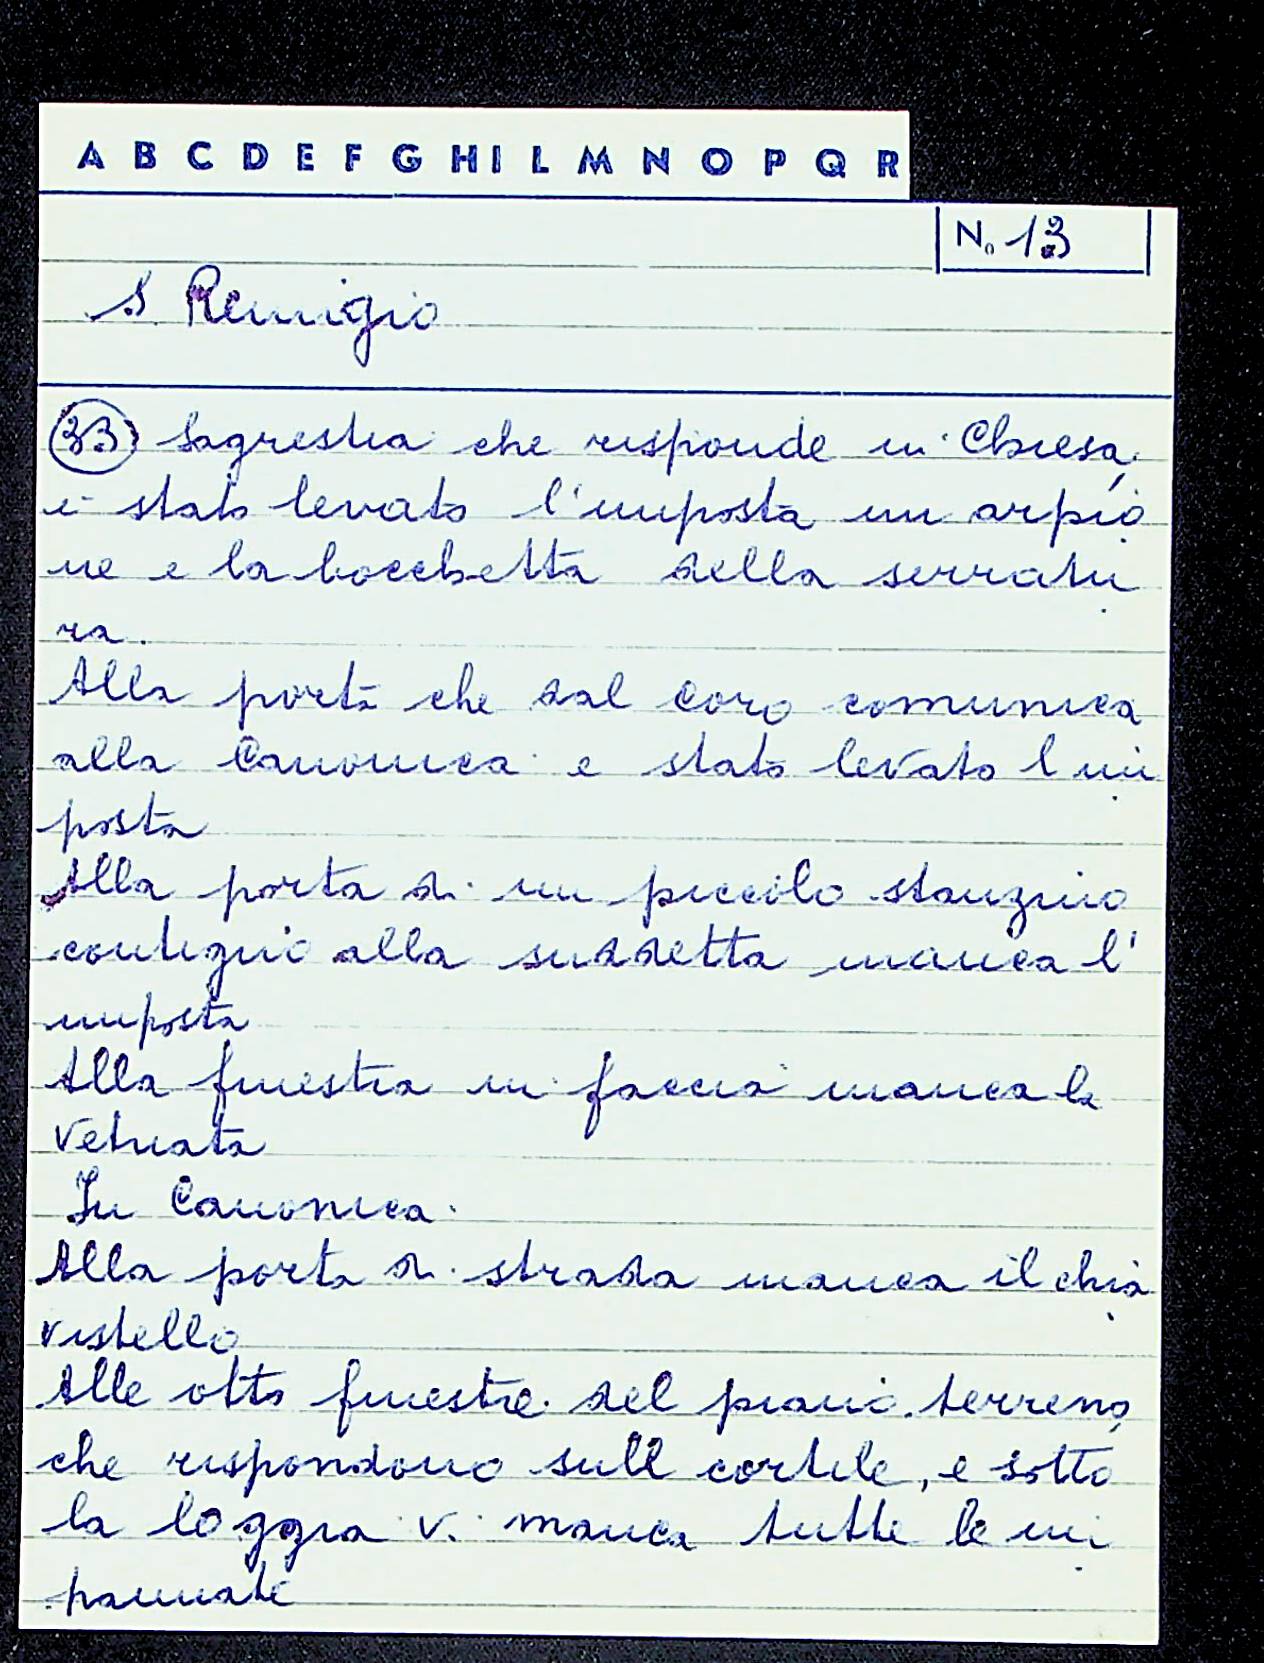 A B C D E F G H I L M N O P Q R
N. 13
S. Remigio
33 Sagrestia che risponde in Chiesa,
è stato levato l'imposta un arpio
ne e la bocchetta della serratu
ra.
Alla porta che dal coro comunica
alla Canonica e stato levato l im
posta
Alla porta di un piccolo stanzino
contiguo alla suddetta manca l'
imposta
Alla finestra in faccia manca la
vetrata
In Canonica.
Alla porta di strada manca il chia
vistello
Alle otto finestre del piano terreno,
che rispondono sull cortile, e sotto
la loggia vi manca tutte le im
pannate